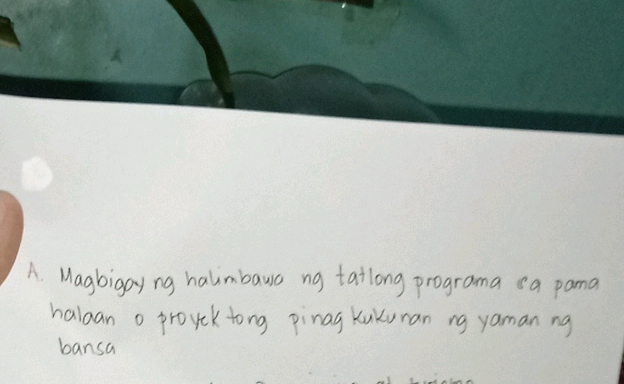 A. Magbigay ng halimbawa ng tatlong programa sa pama
halaan o proyektong pinagkukunan ng yaman ng
bansa